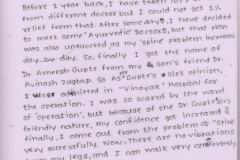 Before 1 year back, I have taken
from different doctor but I could not get 1%
relief from that. After somedays, I have decided
to meet some Ayurvedic Doctors, but that plan
was also unsucceed as my 'spine' problem increased
day by day. So finally I got the name of
Dr Avneesh Gupte from my son's friend Dr
Avinash Jagtap. So As Gupte's sirs opinion,
I was admitted in "Vinayak" Hospital for
the operation. I was so scared by the word
of 'operation', but because of the Dr Gupte Sir's
friendly nature, my confidence got increased &
finally, I came out from the problem of 'spine'
very successfully. Now, There are no vibrations
from my legs, and I can walk very